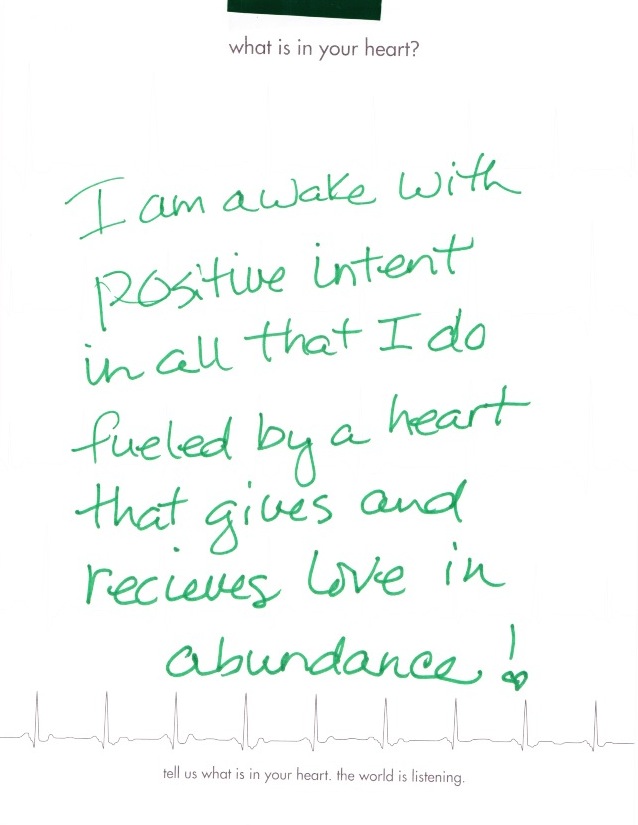 what is in your heart?
I am awake with
positive intent
in all that I do
fueled by a heart
that gives and
recieves love in
abundance!
tell us what is in your heart. the world is listening.